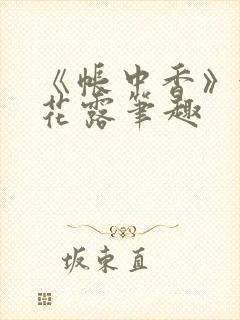 《帐中香》
花露笔趣
坂东直